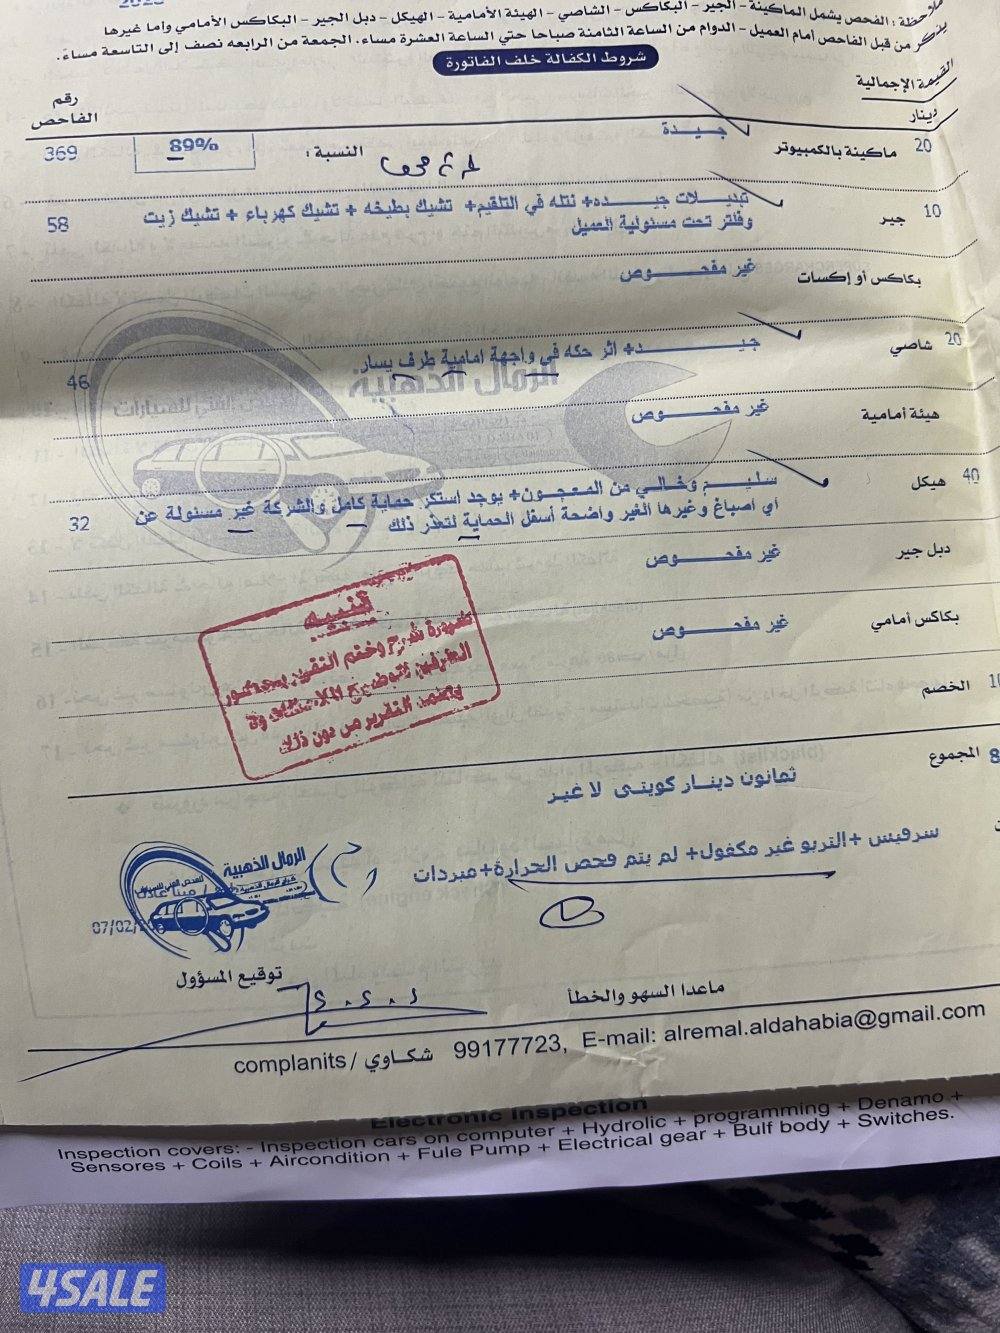 ملاحظة : الفحص يشمل الماكينة - الجير - البكاكس - الشاصي - الهيئة الأمامية - الهيكل - دبل الجير - البكاكس الأمامي واما غيرها
يذكر من قبل الفاحص أمام العميل - الدوام من الساعة الثامنة صباحا حتي الساعة العشرة مساء. الجمعة من الرابعه نصف إلى التاسعة مساءً.
شروط الكفالة خلف الفاتورة
القيمة الإجمالية
دينار
رقم
الفاحص
20 ماكينة بالكمبيوتر جيــدة النسبة : 89% 369
10 جير تبديــلات جيــده+ نتله في التلقيم+ تشيك بطيخه + تشيك كهرباء + تشيك زيت
وفلتر تحت مسئولية العميل 58
بكاكس أو إكسات غير مفحــوص
20 شاصي جيــد+ اثر حكه في واجهة امامية طرف يسار 46
الرمال الذهبية
هيئة أمامية غير مفحــوص
40 هيكل سليــم وخالي من المعجــون+ يوجد استكر حماية كامل والشركة غير مسئولة عن
أي اصباغ وغيرها الغير واضحة أسفل الحماية لتعذر ذلك 32
دبل جير غير مفحــوص
بكاكس أمامي غير مفحــوص
تنبيه
ضرورة شرح وختم التقرير
الطرفين
يعتمد التقرير من دون ذلك
10 الخصم
8 المجموع
ثمانون دينار كويتى لا غير
سرفيس +التربو غير مكفول+ لم يتم فحص الحرارة+مبردات
الرمال الذهبية
07/02/20
توقيع المسؤول
ماعدا السهو والخطأ
complanits / شكاوي 99177723, E-mail: alremal.aldahabia@gmail.com
Electronic Inspection
Inspection covers: - Inspection cars on computer + Hydrolic + programming + Denamo +
Sensores + Coils + Aircondition + Fule Pump + Electrical gear + Bulf body + Switches.
4SALE